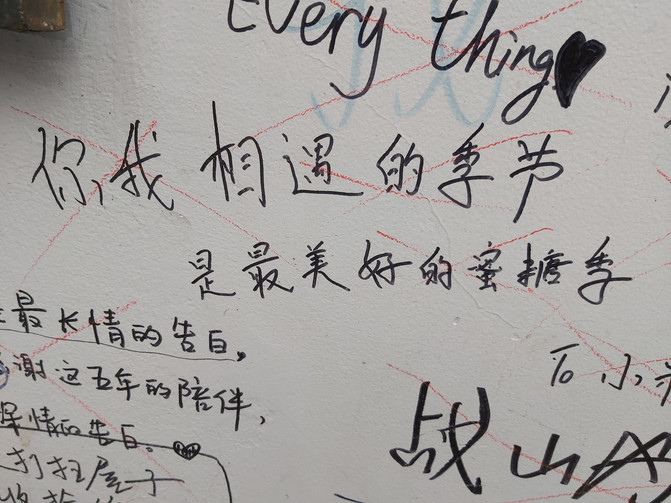 Every thing
你, 我 相遇的季节
是最美好的蜜糖季
最长情的告白,
谢这五年的陪伴,
情的告白。
To 小
战山